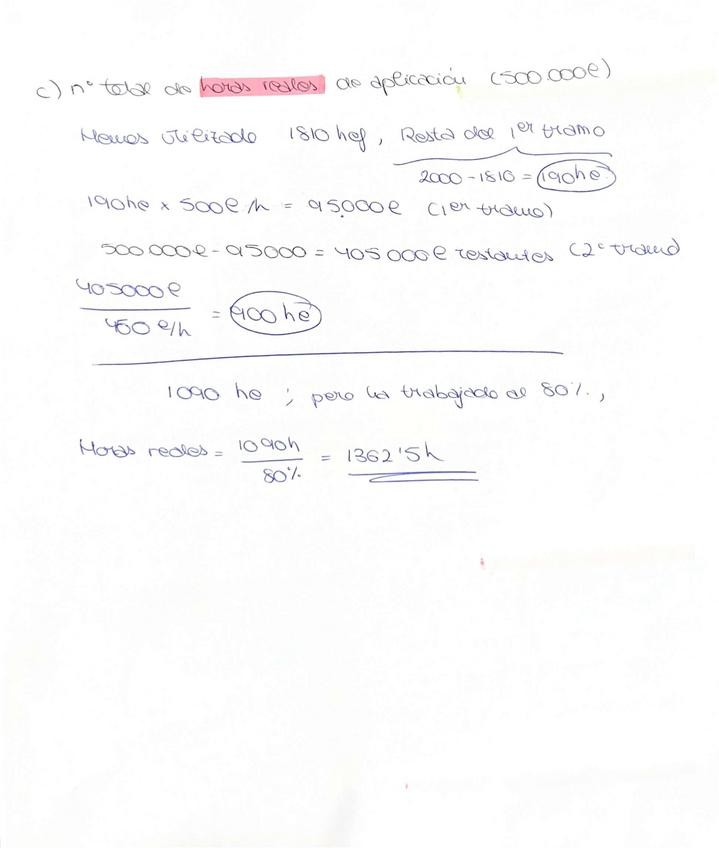 c) nº total de horas reales de aplicación (500.000€)
Hemos utilizado 1810 hef, Resta del 1er tramo
2000 - 1810 = 190he
190he x 500€/h = 95.000€ (1er tramo)
500.000€ - 95000 = 405000€ restantes (2º tramo)
405000€
450 €/h
= 900 he
1090 he ; pero ha trabajado al 80%,
Horas reales = 1090h
80%
= 1362'5h